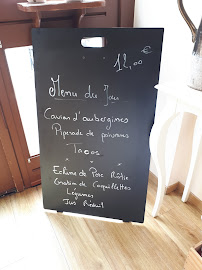 12,00 €
Menu du Jour
Caviar d'aubergines
Piperade de poivrons
Tacos
Echine de Porc Rôtie
Gratin de Coquillettes
Légumes
Jus